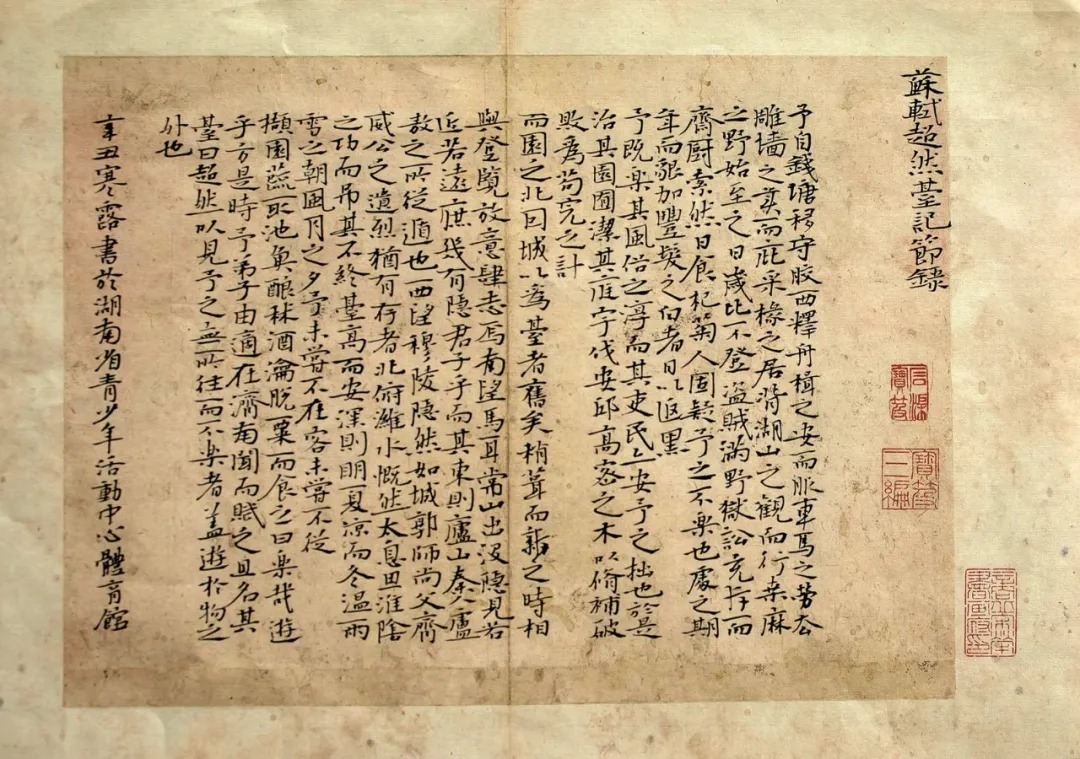 蘇軾超然臺記節錄
石渠寶笈
寶笈三編
予自錢塘移守胶西釋舟楫之安而服車馬之勞去
雕墻之美而庇采椽之居背湖山之觀而行桑麻
之野始至之日歲比不登盜賊滿野獄訟充斥而
齋厨索然日食杞菊人固疑予之不樂也處之期
年而貌加豐髮之白者日以返黑
予既樂其風俗之淳而其吏民亦安予之拙也於是
治其園囿潔其庭宇伐安邱高密之木以脩補破
敗為苟完之計
而園之北因城以為臺者舊矣稍葺而新之時相
與登覽放意肆志焉南望馬耳常山出沒隱見若
近若遠庶幾有隱君子乎而其東則廬山秦人盧
敖之所從遁也西望穆陵隱然如城郭師尚父齊
威公之遺烈猶有存者北俯濰水慨然太息思淮陰
之功而弔其不終臺高而安深則明夏涼而冬溫雨
雪之朝風月之夕予未嘗不在客未嘗不從
擷園蔬取池魚釀秫酒瀹脫粟而食之曰樂哉遊
乎方是時予弟子由適在濟南聞而賦之且名其
臺曰超然以見予之無所往而不樂者蓋遊於物之
外也
辛丑寒露書於湖南省青少年活動中心體育館